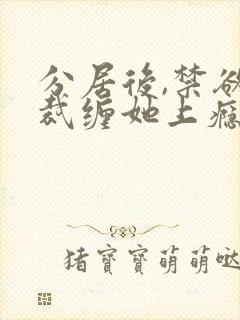 分居後,禁欲
裁缠她上癮
猪寶寶萌萌哒